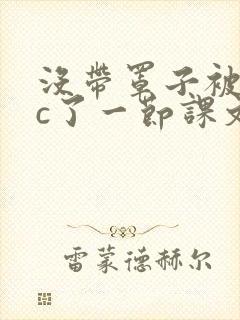 没带罩子被
c了一节课文
雷蒙德赫尔